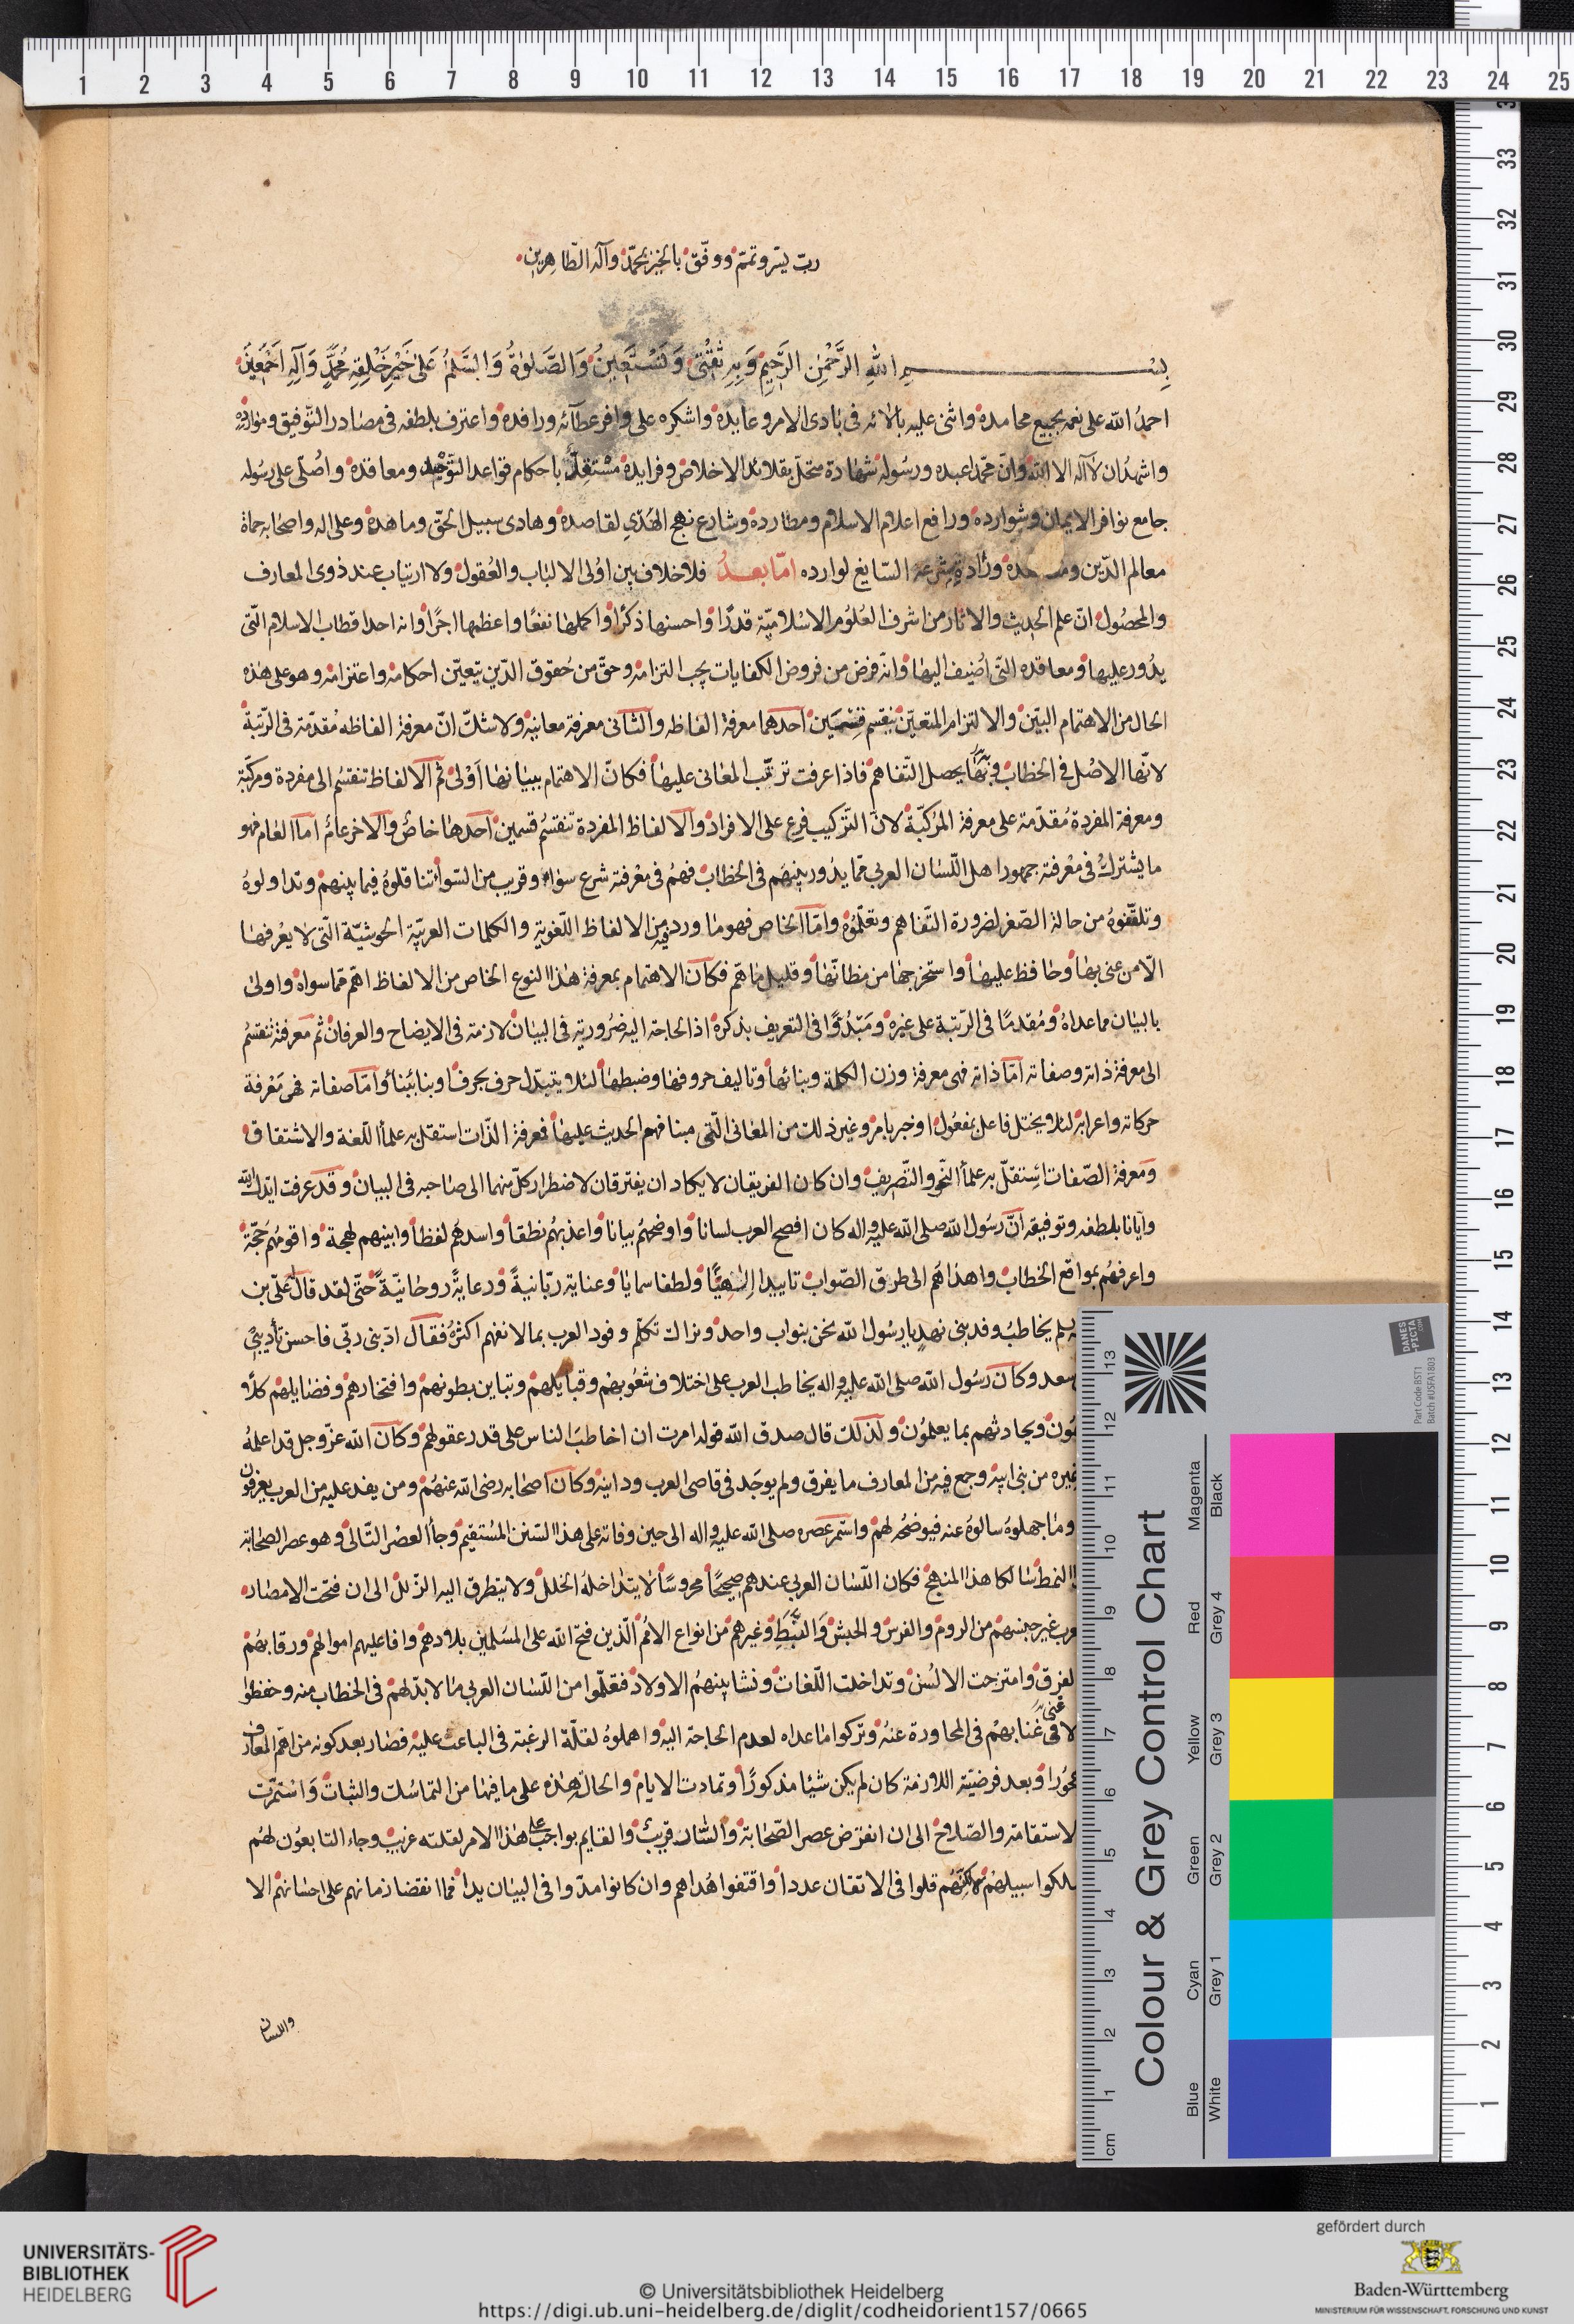 رب يسر وتمم ووفق بالخير بمحمد وآله الطاهرين
بسم الله الرحمن الرحيم وبه ثقتى ونستعين والصلوة والسلم على خير خلقه محمد وآله اجمعين
احمد الله على نعمه بجميع محامده واثنى عليه بالائه فى بادى الامر وعايده واشكره على وافر عطآئه ورافده واعترف بلطفه فى مصادر التوفيق وموارده
واشهد ان لا آله الا الله وان محمدا عبده ورسوله شهادة متحل بقلائد الاخلاص وفرايده مستقل باحكام قواعد التوحيد ومعاقده واصلى على رسوله
جامع نوافر الايمان وشوارده ورافع اعلام الاسلام ومطارده وشارع نهج الهدى لقاصده وهادى سبيل الحق وماهده وعلى اله واصحابه حماة
معالم الدين ورادة مشرعه السايغ لوارده اما بعد فلا خلاف بين اولى الالباب والعقول ولا ارتياب عند ذوى المعارف
والمحصول ان علم الحديث والاثار من اشرف العلوم الاسلاميه قدرا واحسنها ذكرا واكملها نفعا واعظمها اجرا وانه احد اقطاب الاسلام التى
يدور عليها ومعاقده التى اضيف اليها وانه فرض من فروض الكفايات يجب التزامه وحق من حقوق الدين يتعين احكامه واعتزامه وهو على هذه
الحال من الاهتمام البين والالتزام المتعين ينقسم قسمين احدهما معرفة الفاظه والثانى معرفة معانيه ولا شك ان معرفة الفاظه مقدمة فى الرتبة
لانها الاصل فى الخطاب وبها يحصل التفاهم فاذا عرفت ترتب المعانى عليها فكان الاهتمام ببيانها اولى ثم الالفاظ تنقسم الى مفردة ومركبة
ومعرفة المفردة مقدمة على معرفة المركبة لان التركيب فرع على الافراد والالفاظ المفردة تنقسم قسمين احدها خاص والاخر عام اما العام فهو
ما يشترك فى معرفته جمهور اهل اللسان العربى مما يدور بينهم فى الخطاب فهم فى معرفته شرع سواء وقريب من السوا تناقلوه فيما بينهم وتداولوه
وتلقفوه من حالة الصغر لضرورة التفاهم وتعلموه واما الخاص فهو ما ورد فيه من الالفاظ اللغوية والكلمات العربية الحوشية التى لا يعرفها
الا من عنى بها وحافظ عليها واستخرجها من مظانها وقليل ما هم فكان الاهتمام بمعرفة هذا النوع الخاص من الالفاظ اهم مما سواه واولى
بالبيان مما عداه ومقدما فى الرتبة على غيره ومبدوا فى التعريف بذكره اذ الحاجة اليه ضرورية فى البيان لازمة فى الايضاح والعرفان ثم معرفته تنقسم
الى معرفة ذاته وصفاته اما ذاته فهى معرفة وزن الكلمة وبنائها وتاليف حروفها وضبطها لئلا يتبدل حرف بحرف او بنا ببنا واما صفاته فهى معرفة
حركاته واعرابه لئلا يختل فاعل بمفعول او خبر بامر وغير ذلك من المعانى التى مبنا فهم الحديث عليها فمعرفة الذات استقل به علمأ اللغة والاشتقاق
ومعرفة الصفات استقل به علمأ النحو والتصريف وان كان الفريقان لا يكاد ان يفترقان لاضطرار كل منهما الى صاحبه فى البيان وقد عرفت ايدك الله
وايانا بلطفه وتوفيقه ان رسول الله صلى الله عليه واله كان افصح العرب لسانا واوضحهم بيانا واعذبهم نطقا واسدهم لفظا وابينهم لهجة واقومهم حجة
واعرفهم بمواقع الخطاب واهداهم الى طرق الصواب تاييدا الهيا ولطفا سمايا وعناية ربانية ورعاية روحانية حتى لقد قال له على بن
يخاطب وفد بنى نهد يا رسول الله نحن بنو اب واحد ونراك تكلم وفود العرب بما لا نفهم اكثره فقال ادبنى ربى فاحسن تأديبى
سعد وكان رسول الله صلى الله عليه واله يخاطب العرب على اختلاف شعوبهم وقبايلهم وتباين بطونهم وافخاذهم وفضايلهم كلا
ويحادثهم بما يعلمون ولذلك قال صدق الله قوله امرت ان اخاطب الناس على قدر عقولهم وكان الله عز وجل قد اعلمه
غيره من بنى ابيه وجمع فيه من المعارف ما يفرق ولم يوجد فى قاصى العرب ودانيه وكان اصحابه رضى الله عنهم ومن يفد عليه من العرب يعرفون
وما جهلوه سالوه عنه فيوضحه لهم واستمر عصره صلى الله عليه واله الى حين وفاته على هذا السنن المستقيم وجأ العصر الثانى وهو عصر الصحابة
النمط سالكا هذا المنهج فكان اللسان العربى عندهم صحيحا محروسا لا يتداخله الخلل ولا يتطرق اليه الزلل الى ان فتحت الامصار
غير جنسهم من الروم والفرس والحبش والنبط وغيرهم من انواع الامم الذين فتح الله على المسلمين بلادهم وافا عليهم اموالهم ورقابهم
الفرق وامتزجت الالسن وتداخلت اللغات ونشا بينهم الاولاد فتعلموا من اللسان العربى ما لا بد لهم فى الخطاب منه وحفظوا
لا غنى بهم فى المحاورة عنه وتركوا ما عداه لعدم الحاجة اليه واهملوه لقلة الرغبة فى الباعث عليه فصار بعد كونه من اهم المعارف
وبعد فرضيته اللازمة كان لم يكن شيئا مذكورا وتمادت الايام والحال هذه على ما فيها من التماسك والثبات واستمرت
الاستقامة والصلاح الى ان انقرض عصر الصحابة والشان قريب والقايم بواجب هذا الامر لقلته غريب وجاء التابعون لهم
سلكوا سبيلهم لكنهم قلوا فى الاتقان عددا واقتفوا هداهم وان كانوا مدوا فى البيان يدا فما انقضا زمانهم على احسانهم الا
واللسان
Colour & Grey Control Chart
Blue Cyan Green Yellow Red Magenta
White Grey 1 Grey 2 Grey 3 Grey 4 Black
DANES-PICTA.COM
Part Code BST1
Batch #USFA1803
cm 1 2 3 4 5 6 7 8 9 10 11 12 13
1 2 3 4 5 6 7 8 9 10 11 12 13 14 15 16 17 18 19 20 21 22 23 24 25
33 32 31 30 29 28 27 26 25 24 23 22 21 20 19 18 17 16 15 14 13 12 11 10 9 8 7 6 5 4 3 2 1
UNIVERSITÄTS-
BIBLIOTHEK
HEIDELBERG
© Universitätsbibliothek Heidelberg
https://digi.ub.uni-heidelberg.de/diglit/codheidorient157/0665
gefördert durch
Baden-Württemberg
MINISTERIUM FÜR WISSENSCHAFT, FORSCHUNG UND KUNST